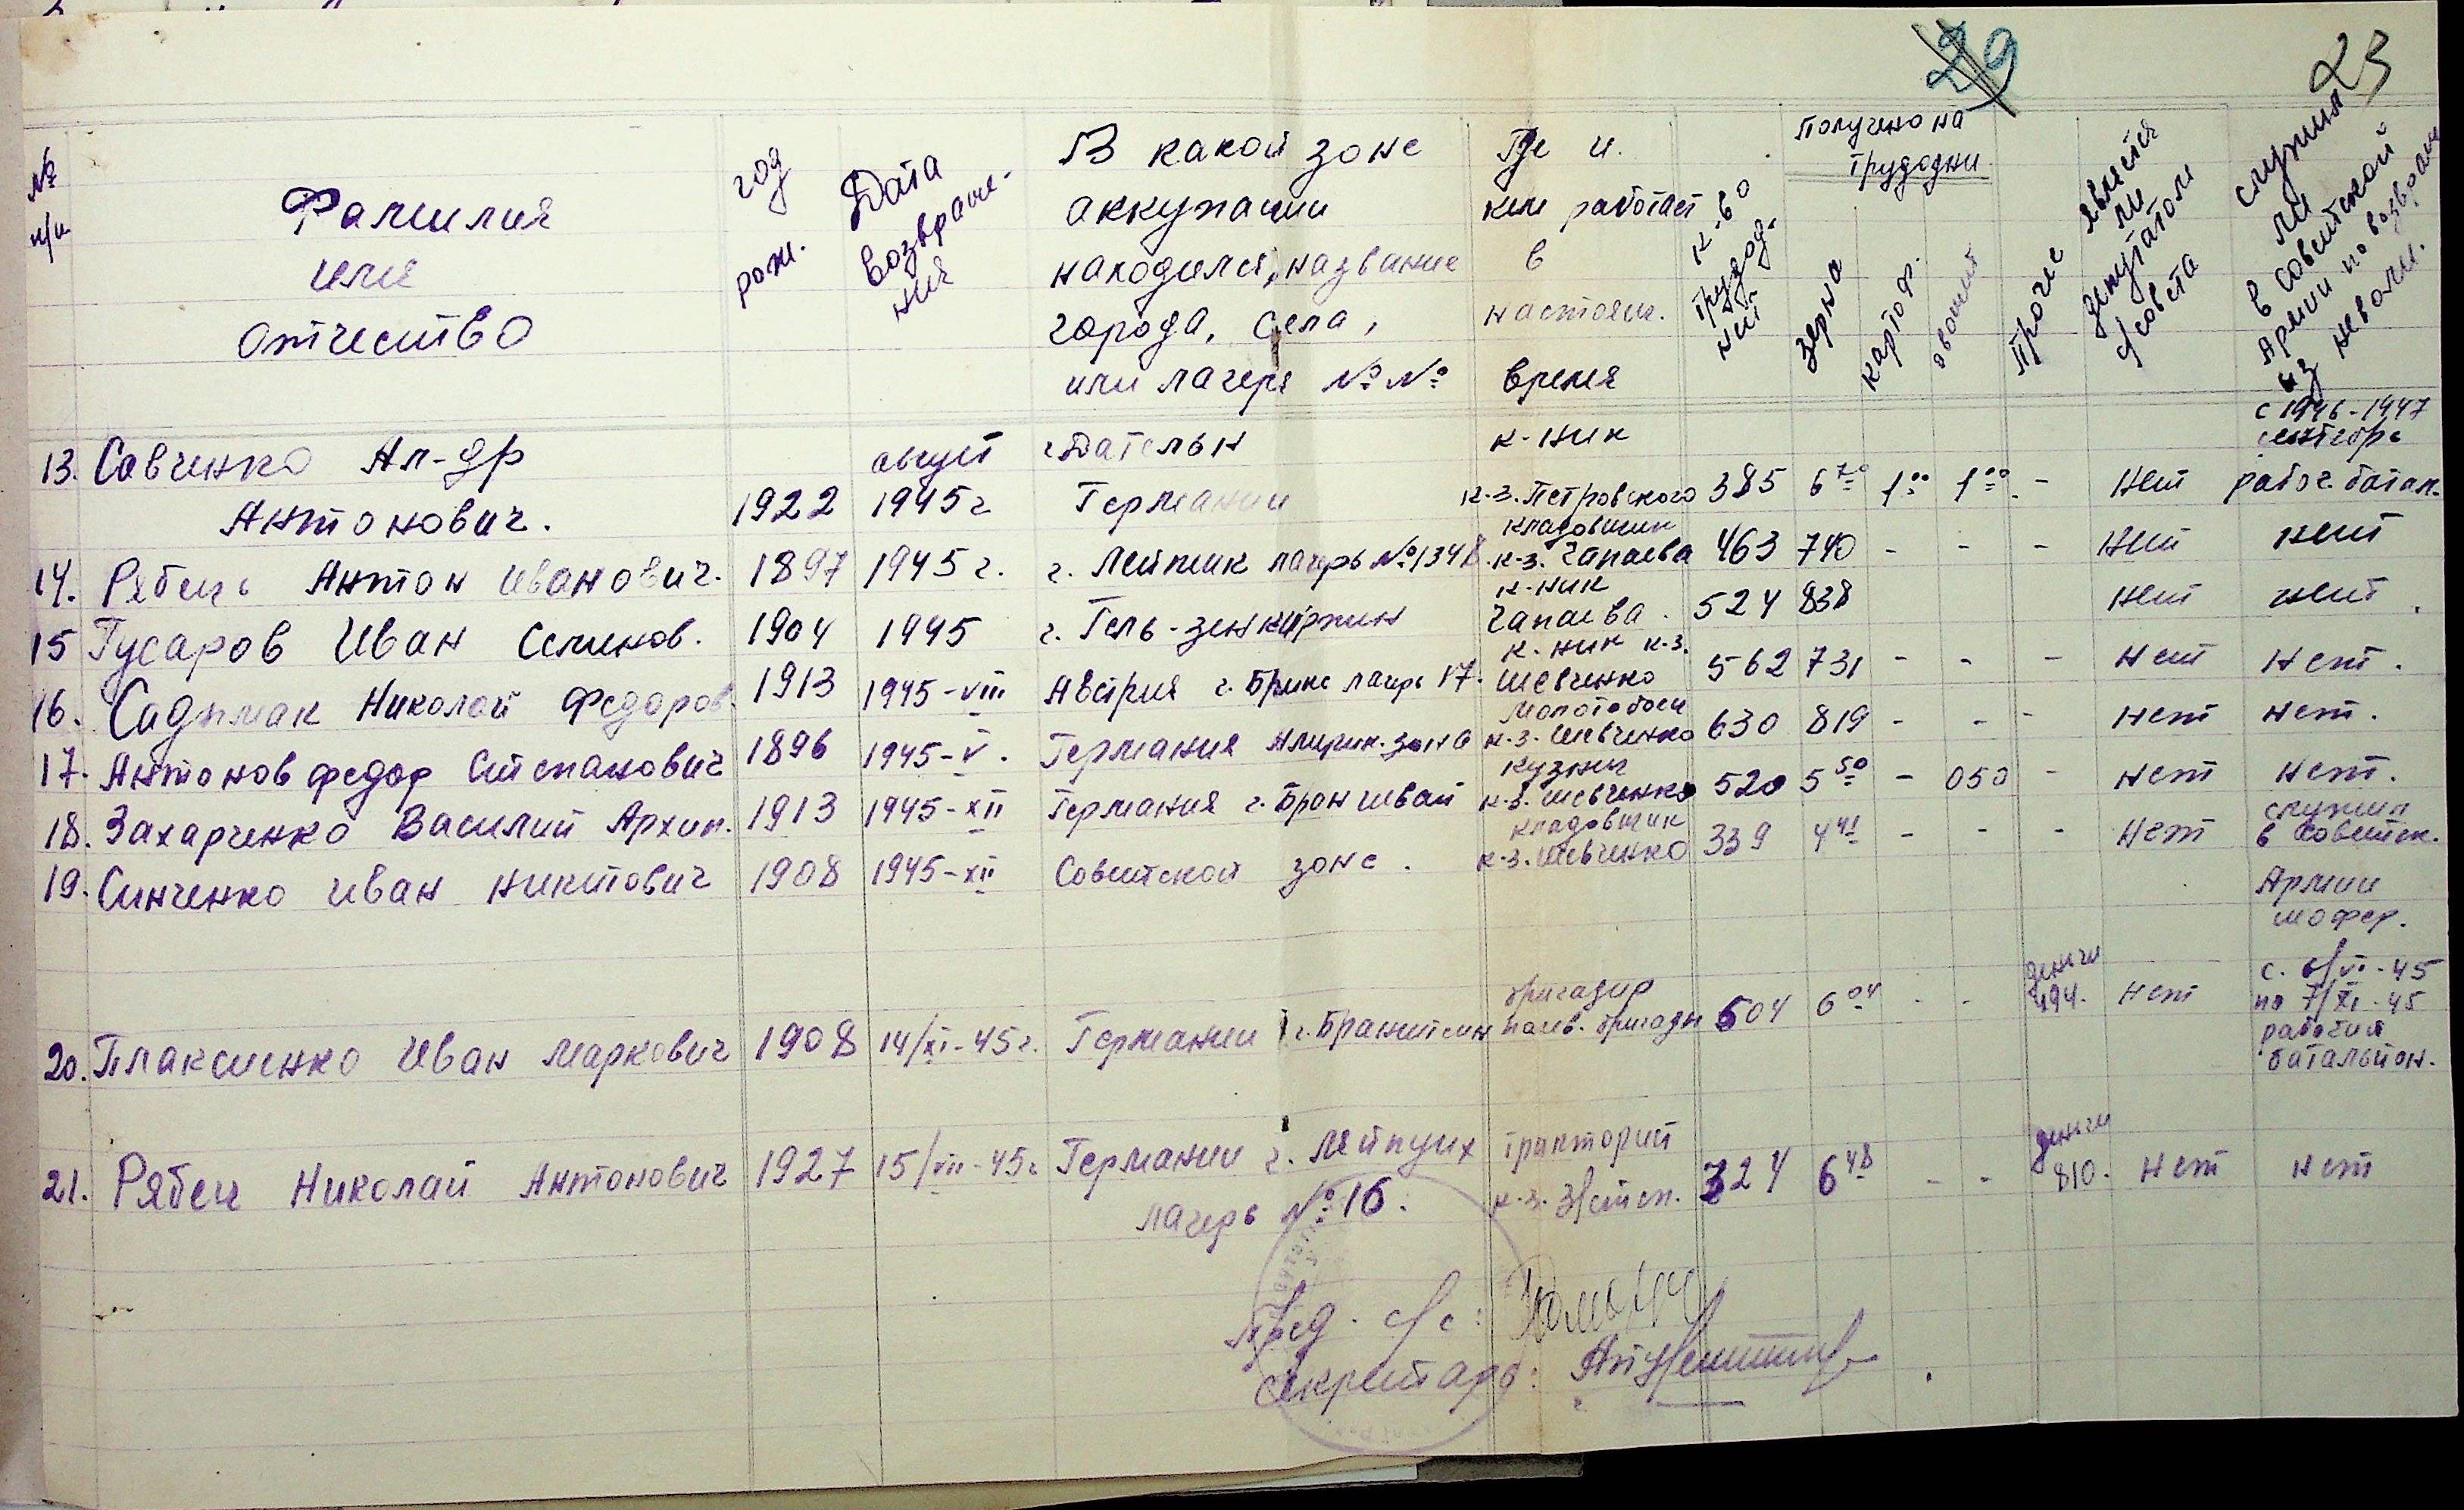 29
23
№ п/п
Фамилия
имя
отчество
год рож.
Дата возвраще-ния
В какой зоне
аккупации
находился, название
города, села,
или лагеря №№
Где и
кем работает
в
настоящ.
время
к-во трудод-ней
Получено на
трудодни
зерна
картоф.
овощей
Прочие
является ли депутатом с/совета
служил ли в советской Армии по возвращ из неволи.
13. Савченко Ал-др
Антонович. 1922 август 1945 г г Дательн Германии к-ник к-з. Петровского 385 6 70 1 00 1 00 - нет с 1946-1947 сентябрь рабоч. батал.
14. Рябець Антон Иванович. 1897 1945 г. г. Лейпцик лагерь №1348 кладовщик к-з. Чапаева 463 740 - - - нет нет
15 Гусаров Иван Семинов. 1904 1945 г. Гель-зенкирхин к-ник Чапаева. 524 838 нет нет.
16. Садпмак Николай Федоров. 1913 1945-VIII Австрия г. Брикс лагерь 17. к-ник к-з. Шевченко 562 731 - - - нет нет.
17. Антонов Федор Степанович 1896 1945-V. Германия Америк. зона молотобоец к-з. Шевченко 630 819 - - - нет нет.
18. Захарченко Василий Архип. 1913 1945-XII Германия г. Броншвай кузнец к-з. Шевченко 520 5 50 - 050 - нет нет.
19. Синченко Иван Никитович 1908 1945-XII Советской зоне. кладовщик к-з. Шевченко 339 4 41 - - - нет служил в Советск. Армии шофер.
20. Плаксиенко Иван Маркович 1908 14/XI-45 г. Германии г. Бранитеин бригадир полев. бригады 504 6 04 - - деньги 494. нет с. 6/VI-45 по 7/XI-45 рабочий батальйон.
21. Рябец Николай Антонович 1927 15/VII-45 г Германии г. Лейпцих
лагерь № 16. тракторист к-з. 324 6 48 - - деньги 810. нет нет
Пред. с/с:
Секретарь: